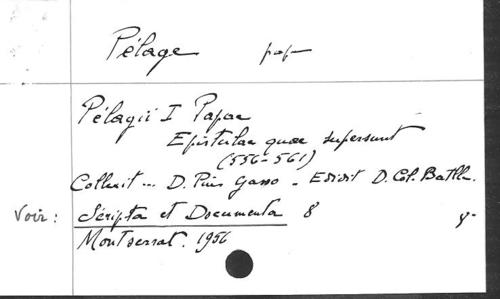 Pélage pape
Pélagii I Papae
Epistulae quae supersunt
(556-561)
Collexit ... D. Pius Gasso - Edidit D. Col. Batlle.
Voir : Scripta et Documenta 8
Montserrat. 1956